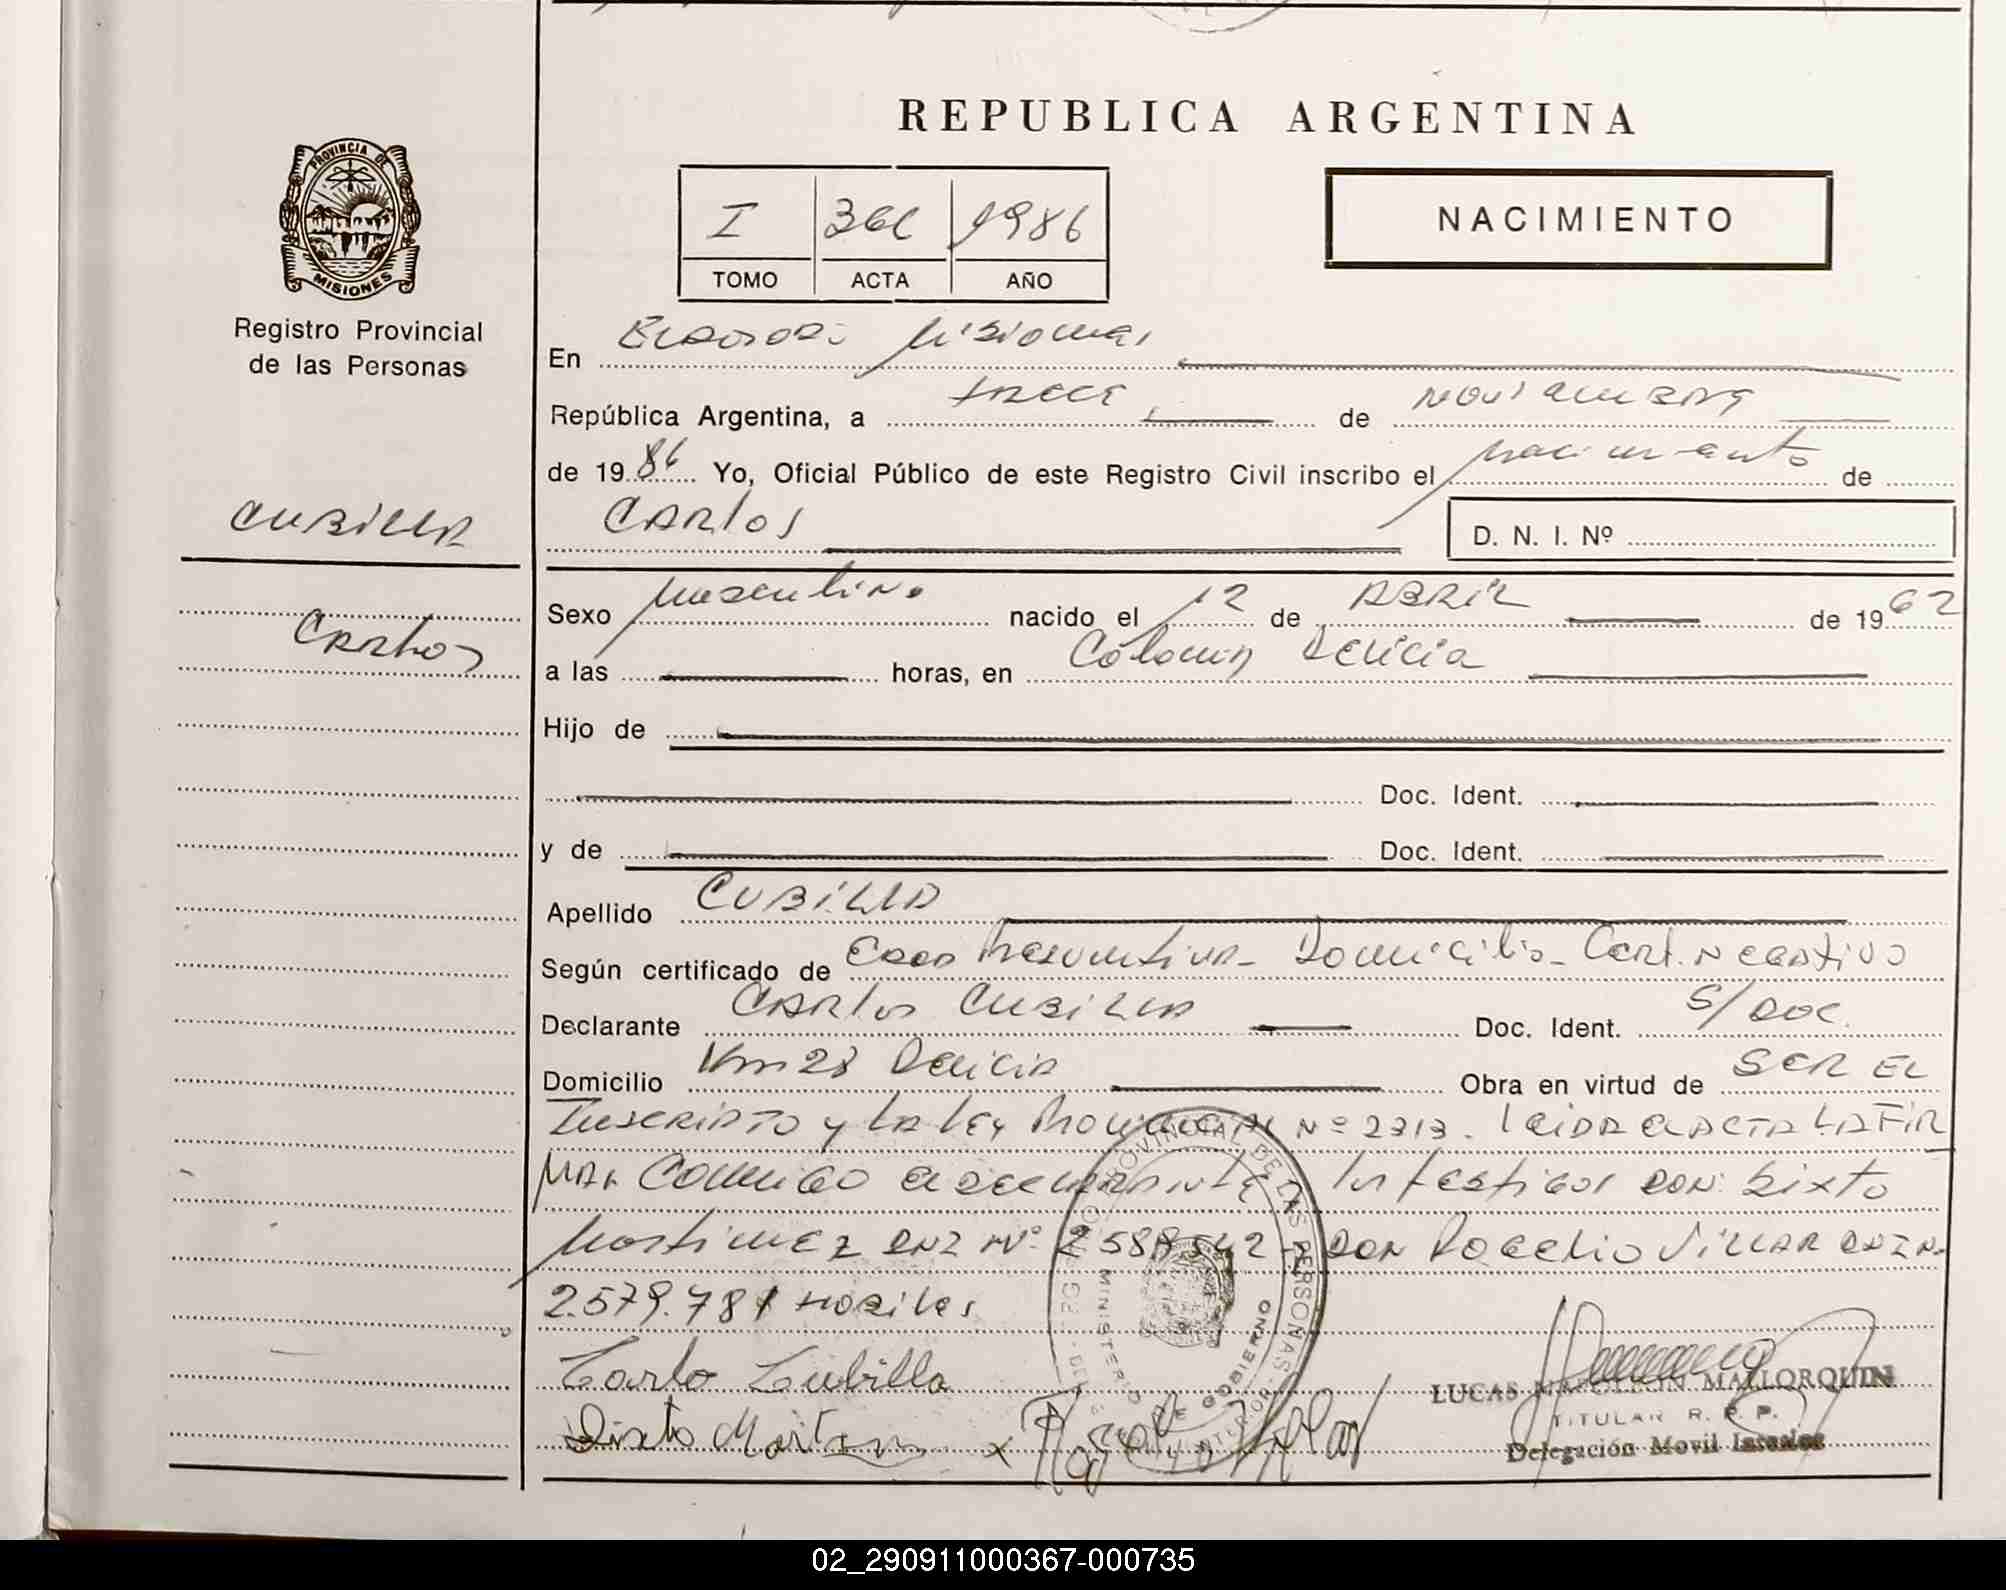 REPUBLICA ARGENTINA
PROVINCIA DE
MISIONES
Registro Provincial
de las Personas
I
1986
TOMO ACTA AÑO
NACIMIENTO
En Eldorado Misiones
República Argentina, a trece de noviembre
de 1986 Yo, Oficial Público de este Registro Civil inscribo el nacimiento de
CARlos D. N. I. Nº
CUBILLA
CARLOS
Sexo masculino nacido el 12 de ABRIL de 1962
a las horas, en Colonia Delicia
Hijo de
Doc. Ident.
y de Doc. Ident.
Apellido CUBILLA
Según certificado de Edad Presuntiva - Domicilio - Cert. Negativo
Declarante CARlos CUBILLA Doc. Ident. S/DOC.
Domicilio Km 28 Delicia Obra en virtud de SER EL
INSCRIPTO y LA LEY PROVINCIAL Nº 2313. LEIDA EL ACTA LA FIR
MAN CONMIGO el declarante los testigos DON: Sixto
Martinez DNI Nº y DON Rogelio VILLAR DNI N.
2.579.781 Hábiles
Carlo Cubilla
Sixto Martin
x Rogelio Villar
REGISTRO PROVINCIAL DE LAS PERSONAS
MINISTERIO DE GOBIERNO
LUCAS NAPOLEON MALLORQUIN
TITULAR R. P. P.
Delegación Movil
02_290911000367-000735